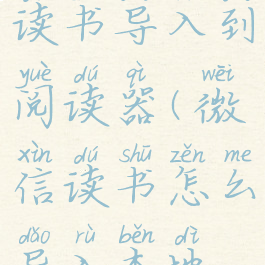 读书导入到
yuè dú qì wēi
阅读器(微
xìn dú shū zěn me
信读书怎么
dǎo rù běn dì
导入本地